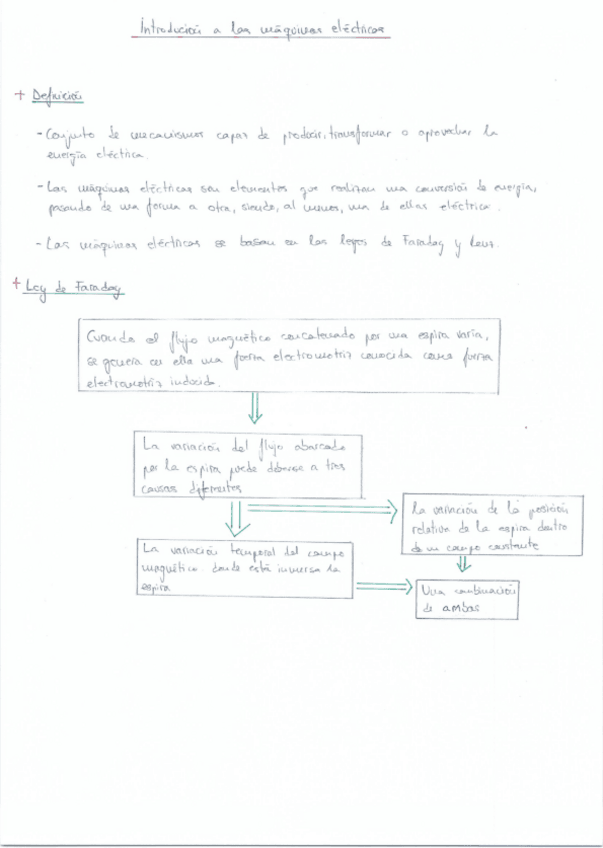 Introducción a las máquinas eléctricas
+ Definición
- Conjunto de mecanismos capaz de producir, transformar o aprovechar la
energía eléctrica.
- Las máquinas eléctricas son elementos que realizan una conversión de energía,
pasando de una forma a otra, siendo, al menos, una de ellas eléctrica.
- Las máquinas eléctricas se basan en las leyes de Faraday y Lenz.
+ Ley de Faraday
Cuando el flujo magnético concatenado por una espira varía,
se genera en ella una fuerza electromotriz conocida como fuerza
electromotriz inducida.
La variación del flujo abarcado
por la espira puede deberse a tres
causas diferentes
La variación de la posición
relativa de la espira dentro
de un campo constante
La variación temporal del campo
magnético donde está inmersa la
espira
Una combinación
de ambas